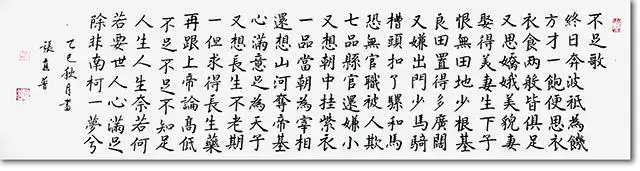 不足歌
終日奔波祇為饑
方才一飽便思衣
衣食兩般皆俱足
又思嬌娥美貌妻
娶得美妻生下子
恨無田地少根基
良田置得多廣闊
又嫌出門少馬騎
槽頭扣了騾和馬
恐無官職被人欺
七品縣官還嫌小
又想朝中掛紫衣
一品當朝為宰相
還想山河奪帝基
心滿意足為天子
又想長生不老期
一但求得長生藥
再跟上帝論高低
不足不足不知足
人生人生奈若何
若要世人心滿足
除非南柯一夢兮
乙巳秋月書
張